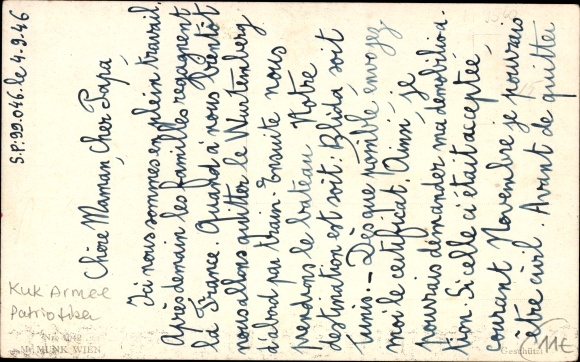 S.P. 99.046. le 4.9.46
Chère Maman, Cher Papa,
Ici nous sommes en plein travail.
Après demain les familles regagnent
la France. Quand à nous bientôt
nous allons quitter le Wurtemberg
d'abord par train. Ensuite nous
prendrons le bateau. Notre
destination est soit: Blida soit
Tunis. - Dès que possible envoyez
moi le certificat. Ainsi je
pourrais démander ma démobilisa-
tion. Si celle ci était acceptée,
courant Novembre je pourrais
être civil. Avant de quitter
KuK Armee
M. MUNK WIEN
Geschützt